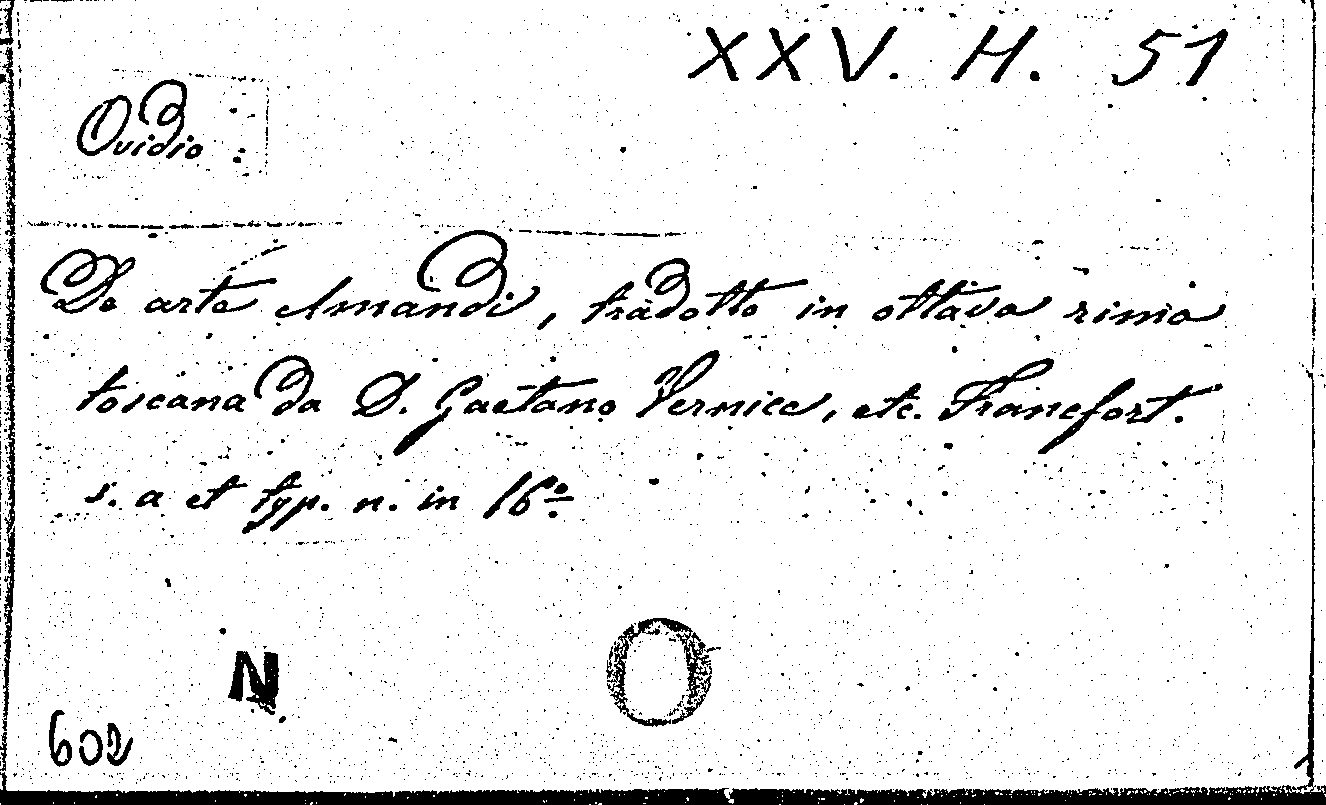 XXV. H. 51
Ovidio :
De arte Amandi, tradotto in ottava rima
toscana da D. Gaetano Vernice, etc. Francfort.
s. a et typ. n. in 16º
N O
602